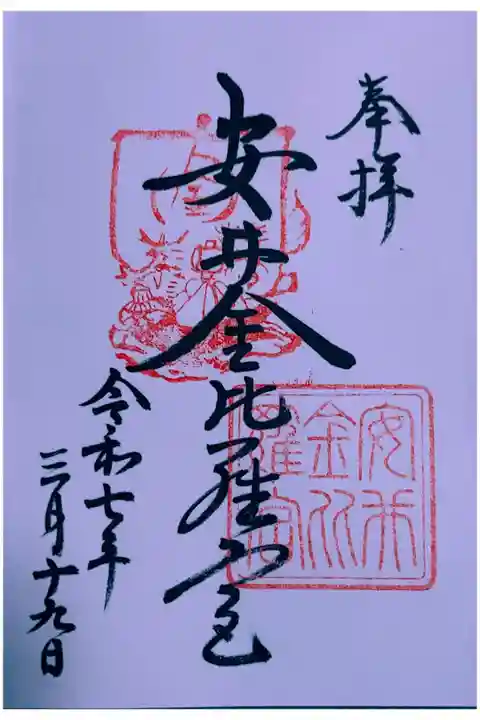 奉拝
安井金比羅宮
令和七年
三月十九日
安井
金比
羅宮
金